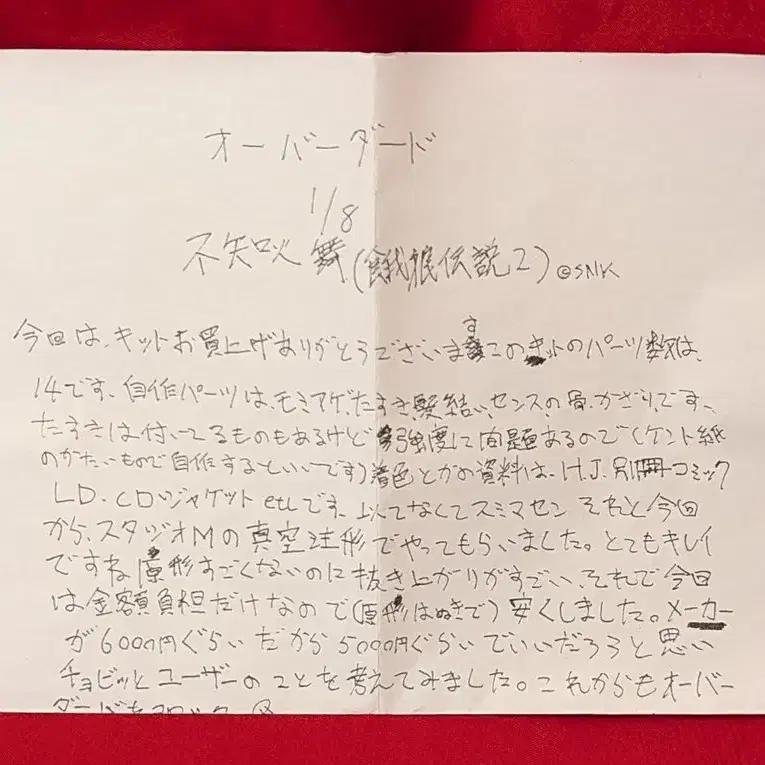 オーバーダード
1/8
不知火 舞(餓狼伝説2)©SNK
今回は、キットお買上げありがとうございます このキットのパーツ数は、
14です、自作パーツは、モミアゲ、たすき、髪結い、センスの骨、かざり、です、
たすきは付いてるものもあるけど 強度に問題あるので(ケント紙
のかたいもので自作するといいです)着色とかの資料は、H.J.別冊コミック
LD.CDジャケットetcです、似てなくてスミマセン それと今回
から、スタジオMの真空注形でやってもらいました。とてもキレイ
ですね 原形すごくないのに抜き上がりがすごい、それで今回
は金額負担だけなので(原形はぬきで)安くしました。メーカー
が6000円ぐらいだから5000円ぐらいでいいだろうと思い
チョビッとユーザーのことを考えてみました。これからもオーバー